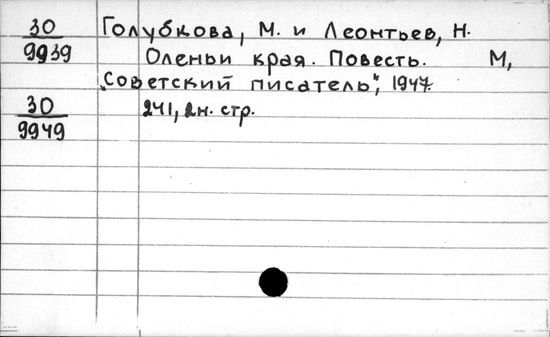 30 Голубкова, М. и Леонтьев, Н.
9939 Оленьи края. Повесть. М,
„Советский писатель", 1947.
30 241, 2н. стр.
9949